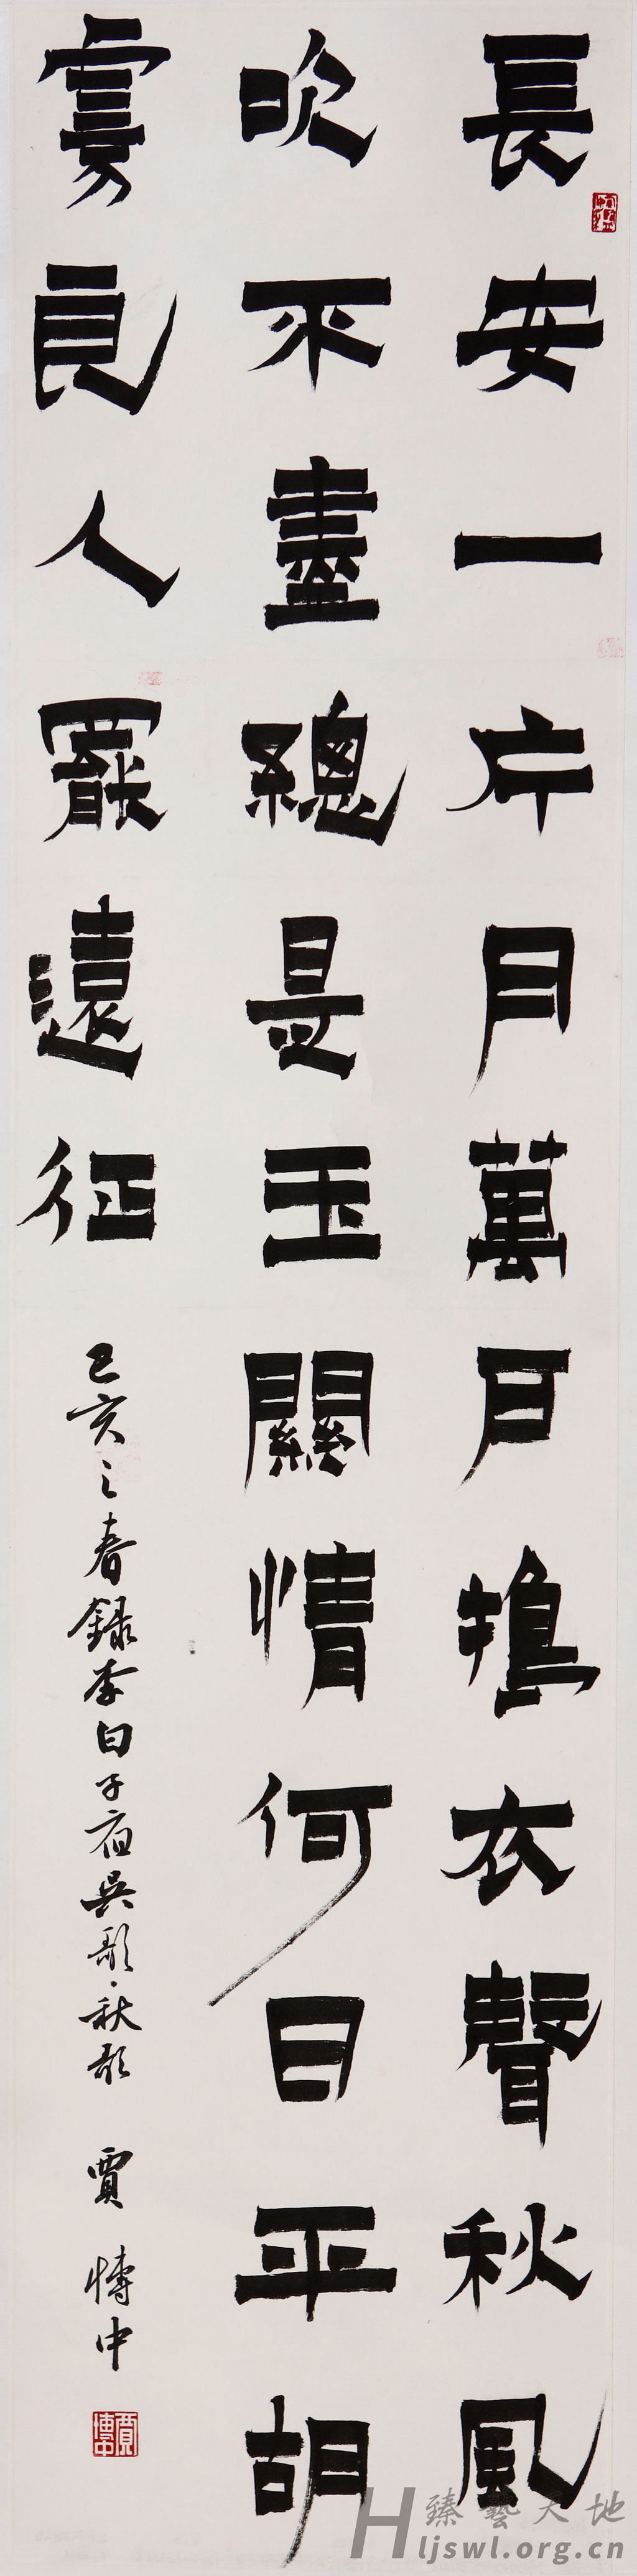 長安一片月萬戶搗衣聲秋風
吹不盡總是玉關情何日平胡
虜良人罷遠征
己亥之春録李白子夜吳歌·秋歌 賈愽中
賈博中
臻藝天地
Hljswl.org.cn